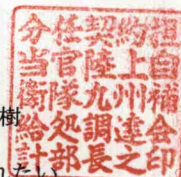 分任契約担
当官陸上自
衛隊九州補
給処調達会
計部長之印
樹
たい